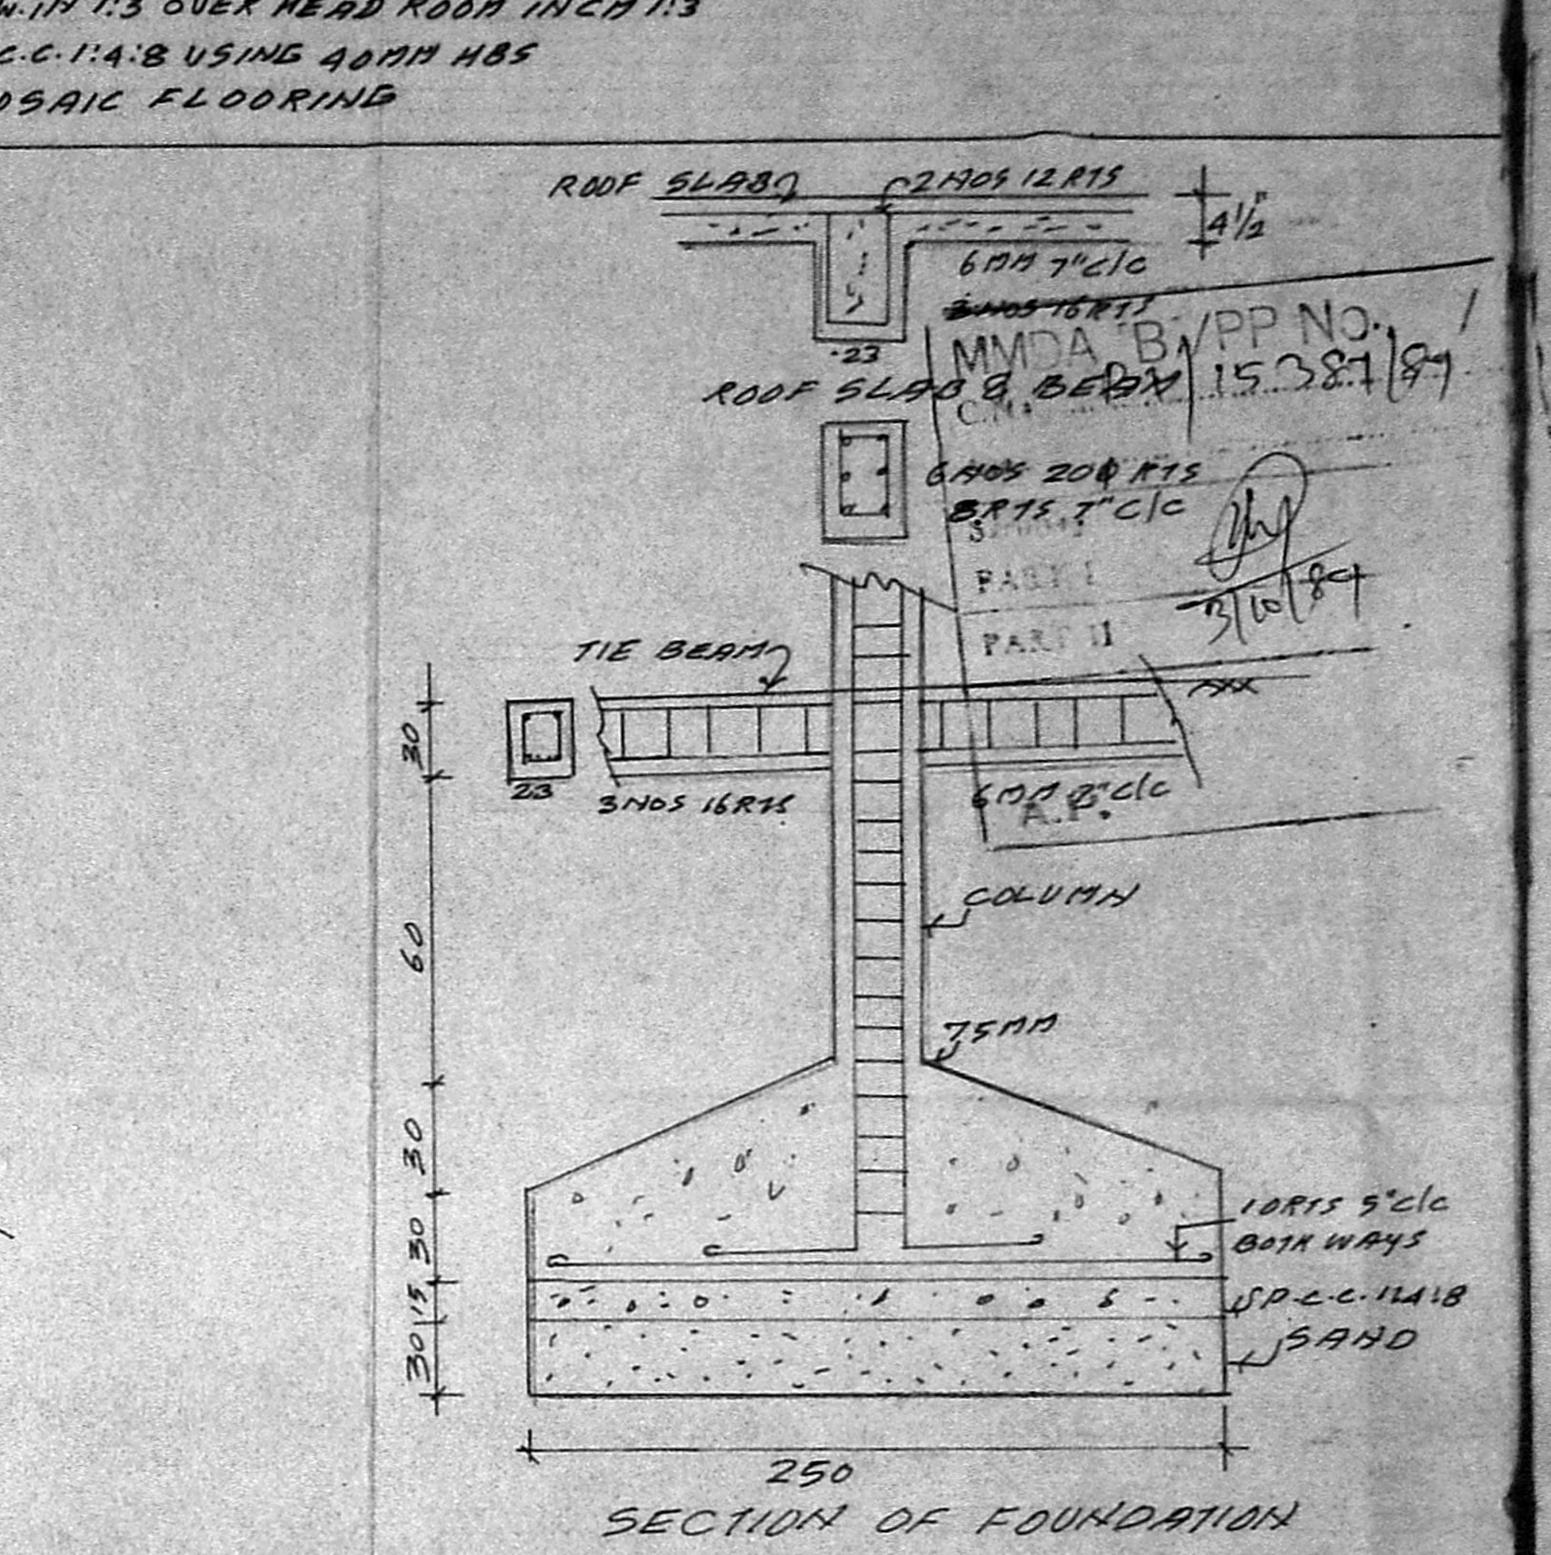 W. IN 1:3 OVER HEAD ROOM IN CM 1:3
C.C. 1:4:8 USING 40MM HBS
OSAIC FLOORING
ROOF SLAB
2 NOS 12 RTS
4½"
6MM 7" C/C
3 NOS 16 RTS
.23
MMDA 'B' / PP NO.
15387/89
ROOF SLAB & BEAM
6 NOS 20 RTS
8 RTS 7" C/C
PART I
3/10/89
PART II
TIE BEAM
30
23
3 NOS 16 RTS
6MM C/C
A.P.
COLUMN
60
75MM
30
10 RTS 5" C/C
BOTH WAYS
30
P.C.C. 1:4:8
15
SAND
30
250
SECTION OF FOUNDATION